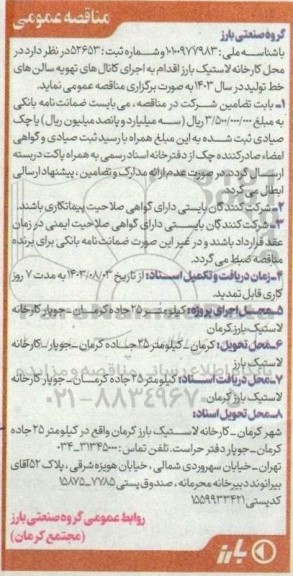 مناقصه عمومی
گروه صنعتی بارز
باشناسه ملی: ۱۰۱۰۰۹۷۷۹۸۳ و شماره ثبت: ۵۲۶۵۳ در نظر دارد در
محل کارخانه لاستیک بارز اقدام به اجرای کانال های تهویه سالن های
خط تولید در سال ۱۴۰۳ به صورت برگزاری مناقصه عمومی نماید.
۱- بابت تضامین شرکت در مناقصه، می بایست ضمانت نامه بانکی
به مبلغ ۳/۵۰۰/۰۰۰/۰۰۰ ریال (سه میلیارد و پانصد میلیون ریال) یا چک
صیادی ثبت شده به این مبلغ همراه با رسید ثبت صیادی و گواهی
امضاء صادرکننده چک از دفترخانه اسناد رسمی به همراه پاکت دربسته
ارسال گردد. در صورت عدم ارائه مدارک و تضامین، پیشنهاد ارسالی
ابطال می گردد.
۲- شرکت کنندگان بایستی دارای گواهی صلاحیت پیمانکاری باشند.
۳- شرکت کنندگان بایستی دارای گواهی صلاحیت ایمنی در زمان
عقد قرارداد باشند و در غیر این صورت ضمانت نامه بانکی برای برنده
مناقصه ضبط می گردد.
۴- زمان دریافت و تکمیل اسناد: از تاریخ ۱۴۰۳/۰۸/۰۳ به مدت ۷ روز
کاری قابل تمدید.
۵- محل اجرای پروژه: کیلومتر ۲۵ جاده کرمان - جوپار کارخانه
لاستیک بارز کرمان
۶- محل تحویل: کرمان - کیلومتر ۲۵ جاده کرمان - جوپار - کارخانه
لاستیک بارز
۷- محل دریافت اسناد: کیلومتر ۲۵ جاده کرمان - جوپار کارخانه
لاستیک بارز کرمان
۸- محل تحویل اسناد:
شهر کرمان - کارخانه لاستیک بارز کرمان واقع در کیلومتر ۲۵ جاده
کرمان - جوپار دفتر حراست. تلفن تماس: ۳۱۳۴۵۰۰۰-۰۳۴
تهران - خیابان سهروردی شمالی، خیابان هویزه شرقی، پلاک ۵۲ آقای
بیرانوند دبیرخانه محرمانه، صندوق پستی ۷۷۸۵-۱۵۸۷۵
کدپستی ۱۵۵۹۹۳۳۴۲۱
روابط عمومی گروه صنعتی بارز
(مجتمع کرمان)
بارز
۰۲۱-۸۸۳۴۹۶۷۰